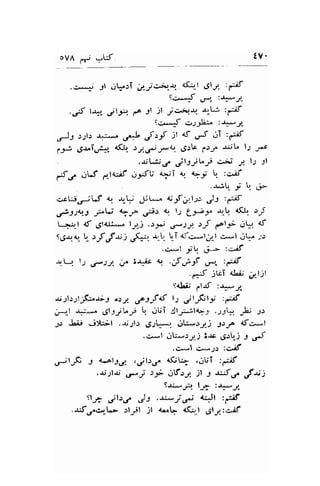 ۴۷۰ کتاب نهم ۵۷۸
گفتم: برای اینکه بدبخت‌ترین آدمیان او نیست.
پرسید: پس کیست؟
گفتم: شاید بدبخت‌تر از او هم بتوانی پیدا کنی.
پرسید: منظورت کیست؟
گفتم: آن کس که از کودکی طبعی مستبد دارد ولی
عمر را مانند مردم عادی بسر نمی‌برد بلکه پیش‌آمدی شوم
او را بر تخت فرمانروائی می‌نشاند.
گفت: با توجه به آنچه تاکنون گفته‌ایم گمان می‌کنم
حق با تو باشد.
گفتم: ولی دراین‌گونه مسائل نباید به گمان قناعت
کرد بلکه باید موضوع را با دقتی هرچه تمامتر و به‌روشی
که بیان خواهم کرد بررسی نمود. زیرا مسئله‌ای که اینجا
در میان است این‌است که آیا باید به نیکی زندگی کرد یا به‌بدی؟
گفت: حق با تو است.
گفتم: پس گوش‌کن. به عقیدهٔ من بررسی را باید
ازاین نقطه آغاز کنیم.
پرسید: کدام نقطه؟
گفتم: توانگرانی را که گروهی برده و خدمتگزار دارند
در نظر بیاور. وجه‌اشتراک آنان با فرمانروای مستبد این
است که هردو زیردستان بسیاری دارند. اختلاف فقط در
کمی و زیادی عدهٔ زیردستان است.
گفت: درست است.
گفتم: آنان، چنانکه می‌دانی، بی‌واهمه و نگرانی
زندگی می‌کنند و از بردگان خود بیمی ندارند.
پرسید: چرا بترسند؟
گفتم: البته نمی‌ترسند. ولی می‌دانی چرا؟
گفت: برای اینکه جامعه از افراد حمایت می‌کند.